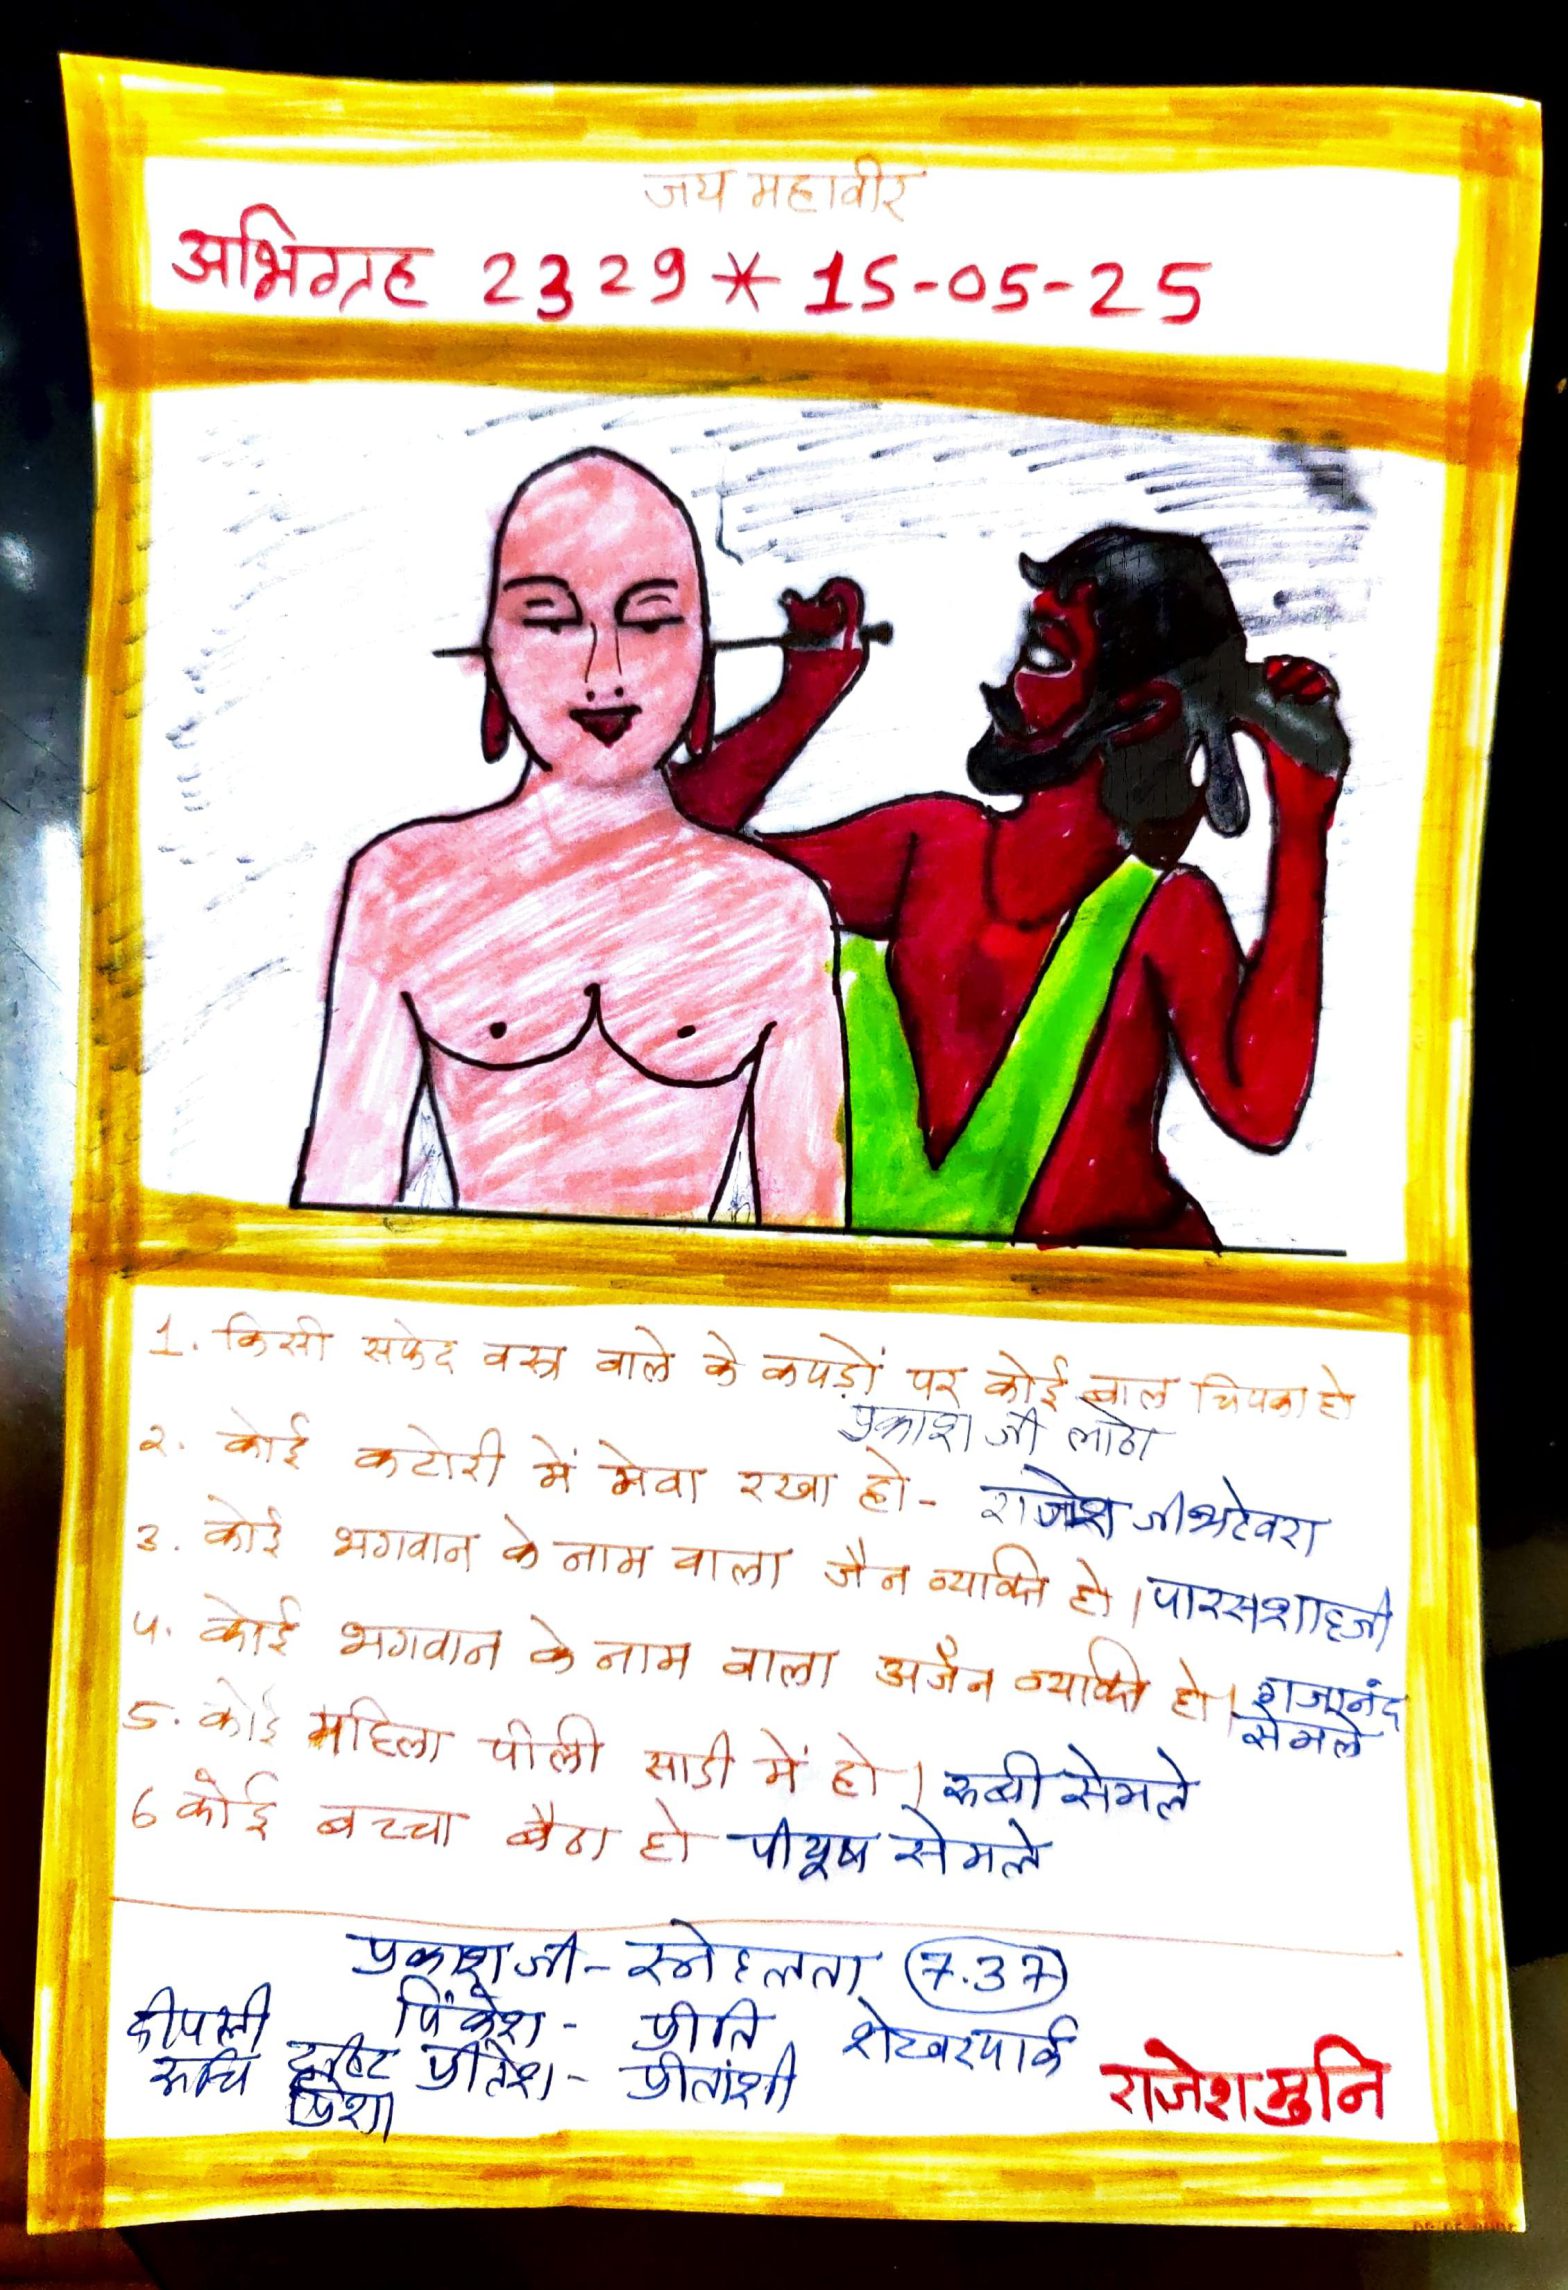 जय महावीर
अभिग्रह 2329 * 15-05-25
1. किसी सफेद वस्त्र वाले के कपड़ों पर कोई बाल चिपका हो
प्रकाश जी लोढा
२. कोई कटोरी में मेवा रखा हो - राजेश जी भटेवरा
3. कोई भगवान के नाम वाला जैन व्यक्ति हो । पारस शाह जी
4. कोई भगवान के नाम वाला अजैन व्यक्ति हो ।
सेमले
5. कोई महिला पीली साडी में हो । रूबी सेमले
6 कोई बच्चा बैठा हो पीयूष सेमले
प्रकाश जी - स्नेहलता 7.37
दीपाली पिंकेश - प्रीति शेखर पार्क
रूचि प्रीतेश - प्रीतांशी
राजेश मुनि